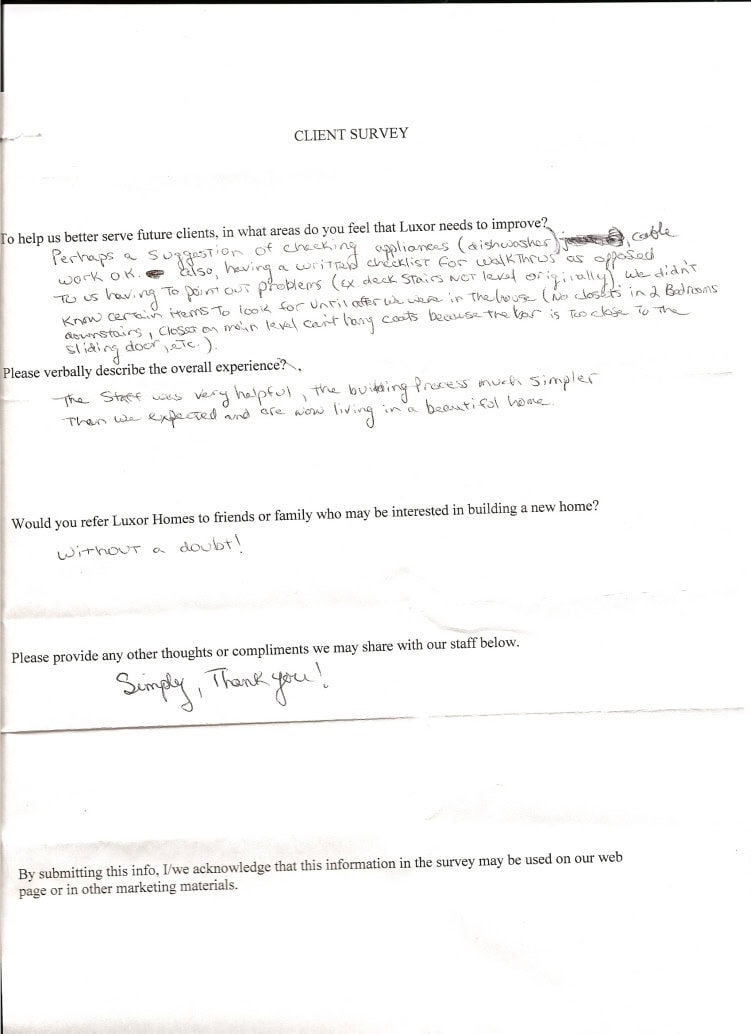 CLIENT SURVEY
To help us better serve future clients, in what areas do you feel that Luxor needs to improve?
Perhaps a suggestion of checking appliances (dishwasher), cable
work OK. Also, having a written checklist for walkthrus as opposed
to us having to point out problems (ex. deck stairs not level originally) We didn't
know certain items to look for until after we were in the house (No closets in 2 Bedrooms
downstairs, closet on main level can't hang coats because the bar is too close to the
sliding door, etc.).
Please verbally describe the overall experience?
The Staff was very helpful, the building process much simpler
then we expected and are now living in a beautiful home.
Would you refer Luxor Homes to friends or family who may be interested in building a new home?
Without a doubt!
Please provide any other thoughts or compliments we may share with our staff below.
Simply, Thank you!
By submitting this info, I/we acknowledge that this information in the survey may be used on our web
page or in other marketing materials.